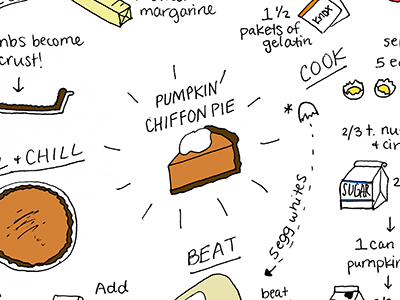 margarine
1 ½
pakets
of
gelatin
KNOX
become
crust!
COOK
5
PUMPKIN
CHIFFON PIE
*
2/3 t.
+
& CHILL
SUGAR
5 egg whites
1 can
BEAT
Add
beat